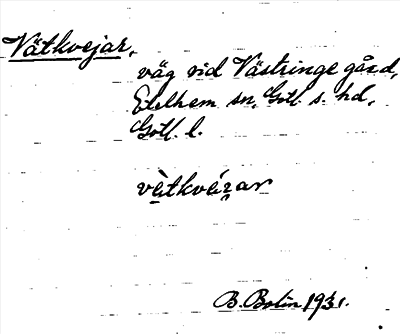 Vätkvejar,
väg vid Västringe gård,
Etelhem sn, Gotl. s. hd,
Gotl. l.
vètkvéɀar
B. Bolin 1931.